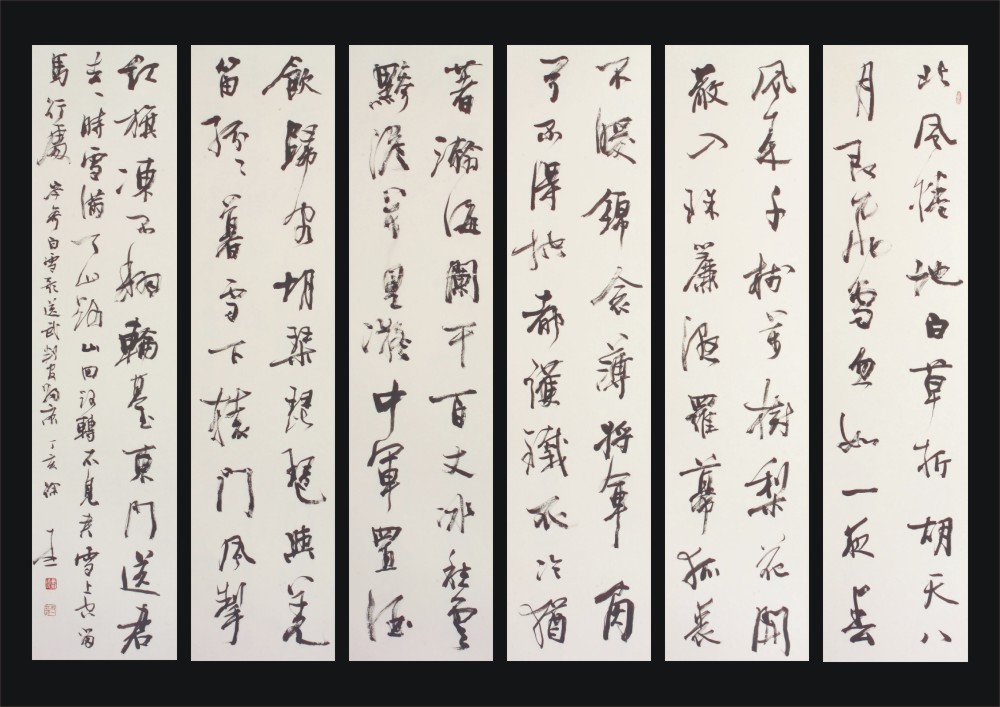 北風捲地白草折胡天八
月即飛雪忽如一夜春
風来千樹萬樹梨花開
散入珠簾濕羅幕狐裘
不暖錦衾薄將軍角
弓不得控都護鐵衣冷猶
著瀚海闌干百丈冰愁雲
黲淡萬里凝中軍置酒
飲歸客胡琴琵琶與羌
笛紛〻暮雪下轅門風掣
紅旗凍不翻輪臺東門送君
去〻時雪滿天山路山回路轉不見君雪上空留
馬行處 岑參白雪歌送武判官歸京 丁亥 徐